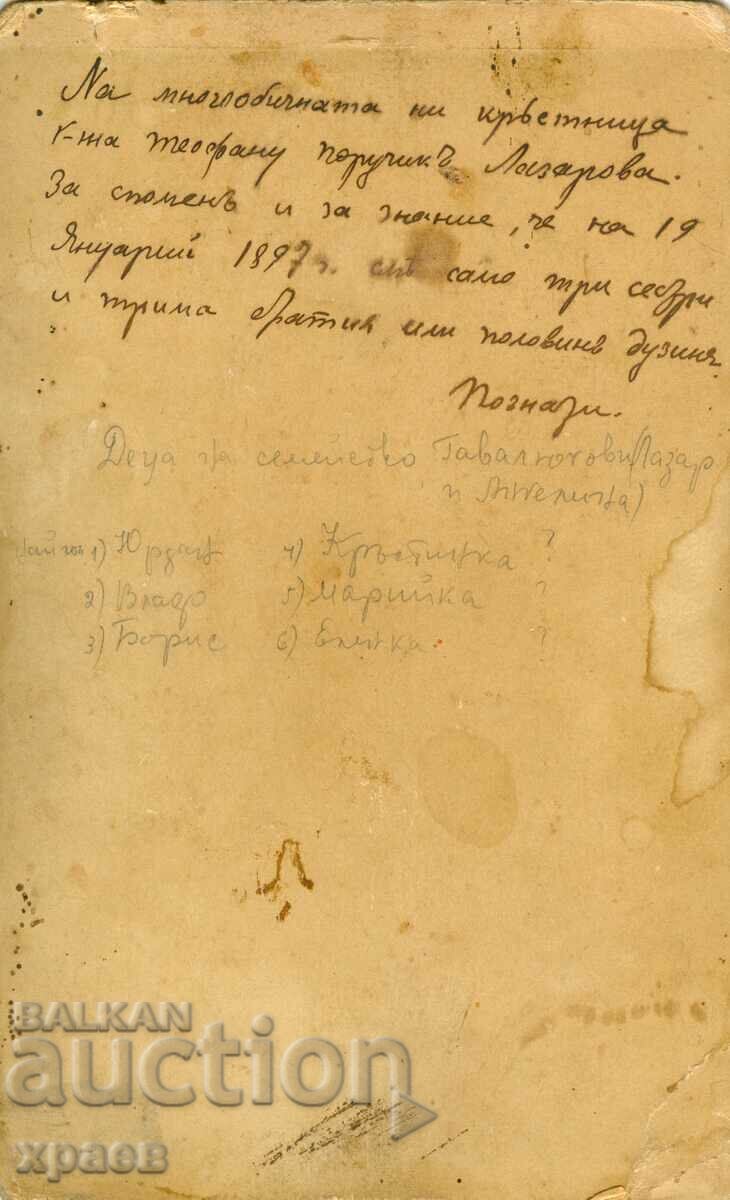 На многобичната ни кръстница
г-жа Теофану поручикъ Лазарова.
За споменъ и за знание, че на 19
Януарий 1897 г. сме само три сестри
и трима братия или половинъ дузина.
Познати.
Деца на семейство Гавалюгови (Лазар
и Ангелина)
1) Юрдан 4) Кръстинка ?
2) Владо 5) Марийка ?
3) Борис 6) Еленка ?
BALKAN
auction
храев